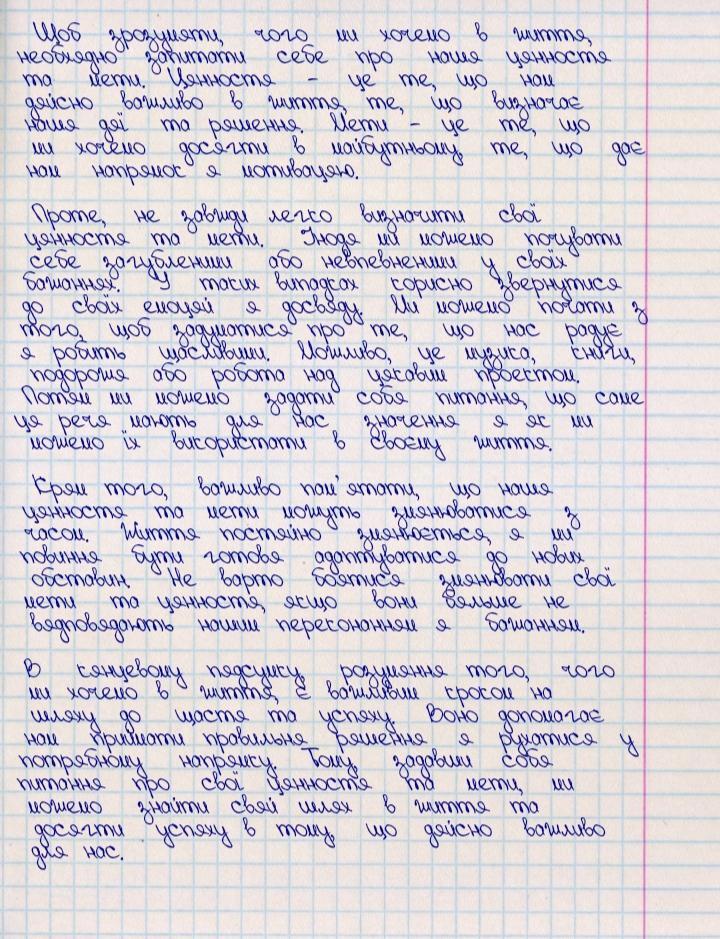 Щоб зрозумяти, чого ми хочемо в життя,
необхядно запитати себе про нашя цянностя
та мети. Цянностя - це те, що нам
дяйсно важливо в життя, те, що визначає
нашя дяї та ряшення. Мети - це те, що
ми хочемо досягти в майбутньому, те, що дає
нам напрямок я мотивацяю.
Проте, не завжди легко визначити свої
цянностя та мети. Інодя ми можемо почувати
себе загубленими або невпевненими у своїх
бажаннях. У таких випадках корисно звернутися
до своїх емоцяй я досвяду. Ми можемо почати з
того, щоб задуматися про те, що нас радує
я робить щасливими. Можливо, це музика, книги,
подорожя або робота над цякавим проектом.
Потям ми можемо задати собя питання, що саме
ця речя мають для нас значення я як ми
можемо їх використати в своєму життя.
Крям того, важливо пам'ятати, що нашя
цянностя та мети можуть змянюватися з
часом. Життя постяйно змянюється, я ми
повиння бути готовя адаптуватися до нових
обставин. Не варто боятися змянювати свої
мети та цянностя, якщо вони бяльше не
вядповядають нашим переконанням я бажанням.
В кянцевому пядсумку, розумяння того, чого
ми хочемо в життя, є важливим кроком на
шляху до щастя та успяху. Воно допомагає
нам приймати правильня ряшення я рухатися у
потрябному напрямку. Тому, задавши собя
питання про свої цянностя та мети, ми
можемо знайти свяй шлях в життя та
досягти успяху в тому, що дяйсно важливо
для нас.